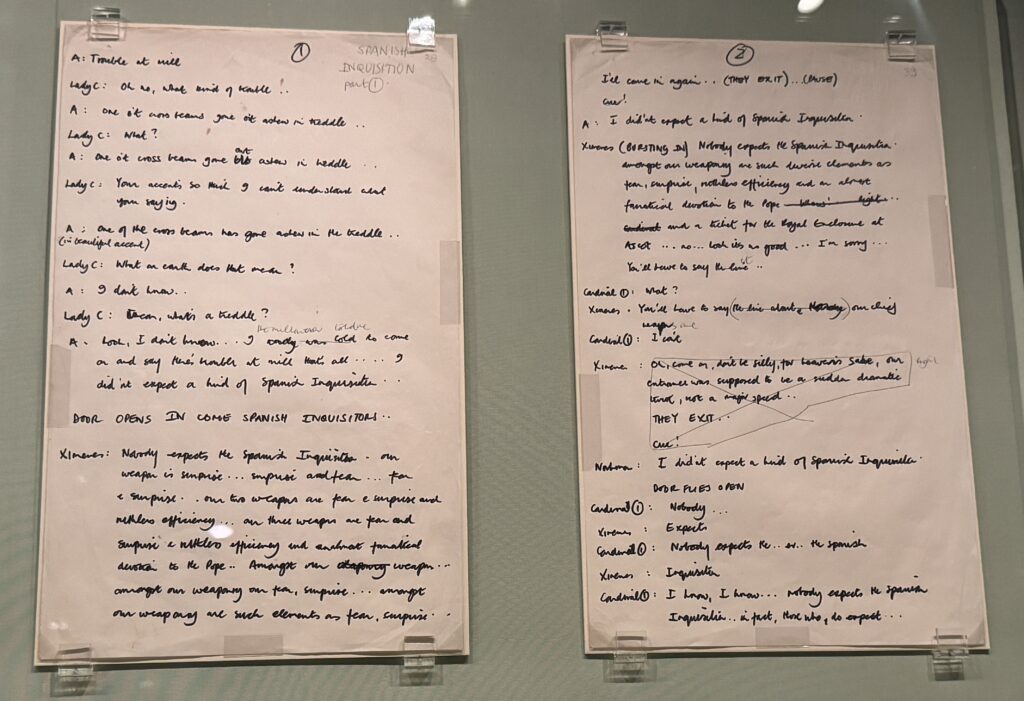 ①
SPANISH
INQUISITION
part ①
A: Trouble at mill
Lady C: Oh no, what kind of trouble!..
A: one o't cross beams gone o't askew in treddle ..
Lady C: What?
A: one o't cross beam gone out askew in treddle ...
Lady C: Your accent's so thick I can't understand what
you saying.
A: one of the cross beams has gone askew in the treddle ..
(in beautiful accent)
Lady C: What on earth does that mean?
A: I don't know..
Lady C: what's a treddle?
the millowner told me
A. Look, I don't know.... I only was told to come
on and say there's trouble at mill that's all .... I
did'nt expect a kind of Spanish Inquisition...
DOOR OPENS IN COME SPANISH INQUISITORS..
Ximenes: Nobody expects the Spanish Inquisition. our
weapon is surprise... surprise and fear... fear
& surprise.. our two weapons are fear & surprise and
ruthless efficiency... our three weapons are fear and
surprise & ruthless efficiency and an almost fanatical
devotion to the Pope.. Amongst our weaponry weapon...
amongst our weaponry our fear, surprise.... amongst
our weaponry are such elements as fear, surprise..
②
33
I'll come in again.. (THEY EXIT)..(PAUSE)
Cue!
A: I did'nt expect a kind of Spanish Inquisition.
Ximenes (BURSTING IN) Nobody expects the Spanish Inquisition.
amongst our weaponry are such diverse elements as
fear, surprise, ruthless efficiency and an almost
fanatical devotion to the Pope
and a ticket for the Royal Enclosure at
Ascot .... no... look it's no good... I'm sorry...
You'll have to say the line..
Cardinal ①: What?
Ximenes. You'll have to say (the line about Nobody) our chief
weapons are
Cardinal ①: I can't
Ximenes: Oh, come on, don't be silly, for heaven's sake, our
entrance was supposed to be a sudden dramatic
not a major speech..
THEY EXIT..
Cue!
Northerner: I did'nt expect a kind of Spanish Inquisition.
DOOR FLIES OPEN
Cardinal ①: Nobody...
Ximenes: Expects
Cardinal ①: Nobody expects the.. er.. the Spanish
Ximenes: Inquisition
Cardinal ①: I know, I know... nobody expects the Spanish
Inquisition.. in fact, those who, do expect...